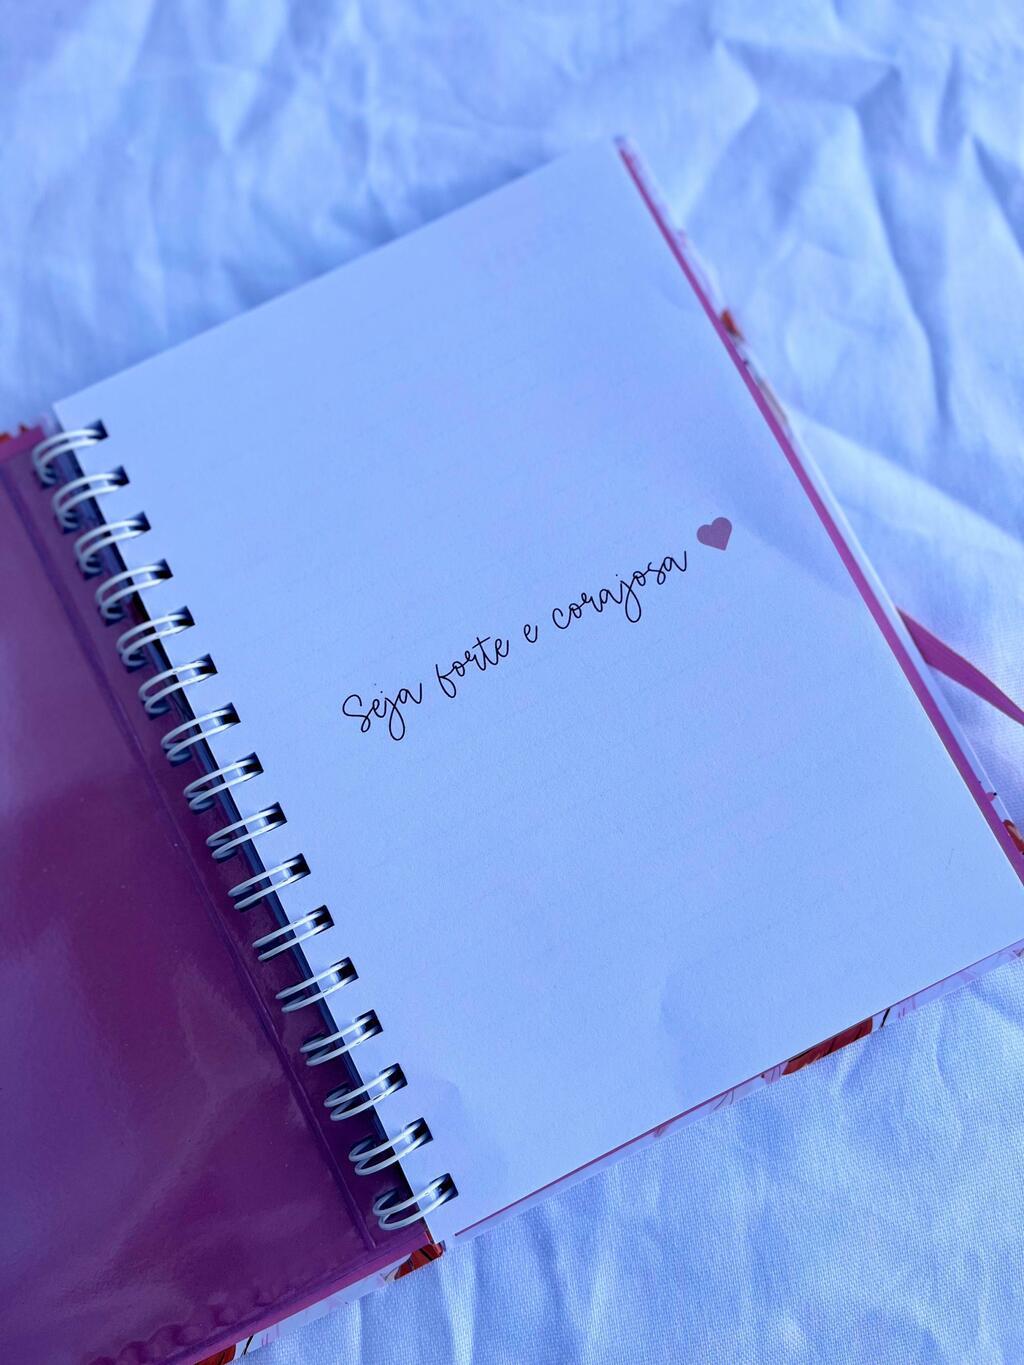 Seja forte e corajosa